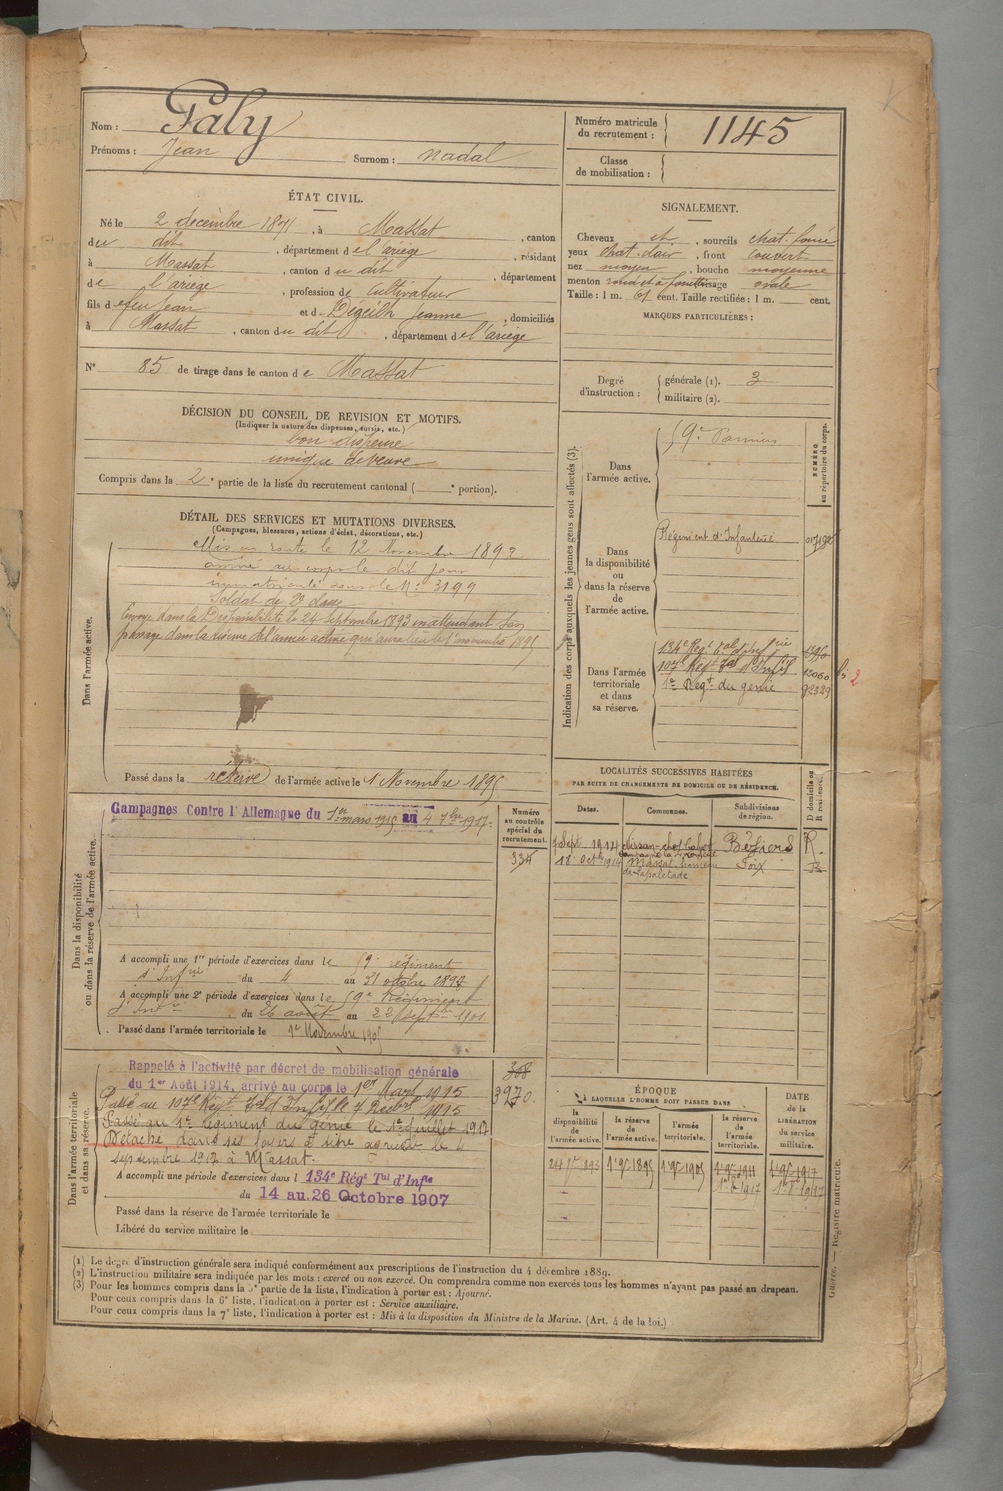 Nom : Galy
Prénoms : Jean Surnom : nadal
Numéro matricule du recrutement : 1145
Classe de mobilisation :
ÉTAT CIVIL.
Né le 2 décembre 1871, à Massat, canton
du dit, département de l'ariège, résidant
à Massat, canton du dit, département
de l'ariège, profession de cultivateur
fils de feu Jean et de Dégeilh Jeanne, domiciliés
à Massat, canton du dit, département de l'ariège
N° 85 de tirage dans le canton de Massat
DÉCISION DU CONSEIL DE REVISION ET MOTIFS.
(Indiquer la nature des dispenses, sursis, etc.)
bon dispensé
unique de veuve
Compris dans la 2e partie de la liste du recrutement cantonal ( e portion).
SIGNALEMENT.
Cheveux et, sourcils chat. foncé
yeux chat. clair, front couvert
nez moyen, bouche moyenne
menton rond et à fossette visage ovale
Taille : 1 m. 61 cent. Taille rectifiée : 1 m. cent.
MARQUES PARTICULIÈRES :
Degré d'instruction : générale (1). 3
militaire (2).
DÉTAIL DES SERVICES ET MUTATIONS DIVERSES.
(Campagnes, blessures, actions d'éclat, décorations, etc.)
Dans l'armée active.
Mis en route le 12 Novembre 1892
arrivé au corps le dit jour
immatriculé sous le N° 3199
Soldat de 2e classe
Envoyé dans la Disponibilité le 24 septembre 1893 en attendant son
passage dans la réserve de l'armée active qui aura lieu le 1er novembre 1895
Passé dans la réserve de l'armée active le 1 Novembre 1895
Indication des corps auxquels les jeunes gens sont affectés (3).
NUMÉRO au répertoire du corps.
Dans l'armée active.
59e Pamiers
Dans la disponibilité ou dans la réserve de l'armée active.
Régiment d'Infanterie
Dans l'armée territoriale et dans sa réserve.
134e Régt tal d'Infrie
107e Régt Tal d'Infie 12060
1er Régt du génie 92329
bis 2
LOCALITÉS SUCCESSIVES HABITÉES
PAR SUITE DE CHANGEMENTS DE DOMICILE OU DE RÉSIDENCE.
Dates. Communes. Subdivisions de région. D domicile ou R résidence.
7 Sept. 1914 Nissan Béziers R.
18 Octbre 1914 Massat Foix
Dans la disponibilité ou dans la réserve de l'armée active.
Campagnes Contre l'Allemagne du 1er mars 1915 au 4 7bre 1917.
Numéro au contrôle spécial du recrutement.
334
A accompli une 1re période d'exercices dans le 59e régiment
d'Infrie du 4 au 31 octobre 1897
A accompli une 2e période d'exercices dans le 59e Régiment
d'Infrie du 26 août au 22 septbre 1901
Passé dans l'armée territoriale le 1er Novembre 1905
Dans l'armée territoriale et dans sa réserve.
Rappelé à l'activité par décret de mobilisation générale
du 1er Août 1914, arrivé au corps le 1er Mars 1915
368
3970.
Passé au 107e Régt Tal d'Infie le 7 Décbre 1915
Passé au 1er régiment du génie le 1er juillet 1917
Détaché dans ses foyers à titre agricole le 4
septembre 1917 à Massat.
A accompli une période d'exercices dans l 134e Régt Tal d'Infie
du 14 au 26 Octobre 1907
Passé dans la réserve de l'armée territoriale le
Libéré du service militaire le
ÉPOQUE
À LAQUELLE L'HOMME DOIT PASSER DANS
DATE de la LIBÉRATION du service militaire.
la disponibilité de l'armée active. la réserve de l'armée active. l'armée territoriale. la réserve de l'armée territoriale.
24 7bre 1893 1er 9bre 1895 1er 9bre 1905 1er 9bre 1911 1er 9bre 1917
(1) Le degré d'instruction générale sera indiqué conformément aux prescriptions de l'instruction du 4 décembre 1889.
(2) L'instruction militaire sera indiquée par les mots : exercé ou non exercé. On comprendra comme non exercés tous les hommes n'ayant pas passé au drapeau.
(3) Pour les hommes compris dans la 5e partie de la liste, l'indication à porter est : Ajourné.
Pour ceux compris dans la 6e liste, l'indication à porter est : Service auxiliaire.
Pour ceux compris dans la 7e liste, l'indication à porter est : Mis à la disposition du Ministre de la Marine. (Art. 4 de la loi.)
Guerre. — Registre matricule.